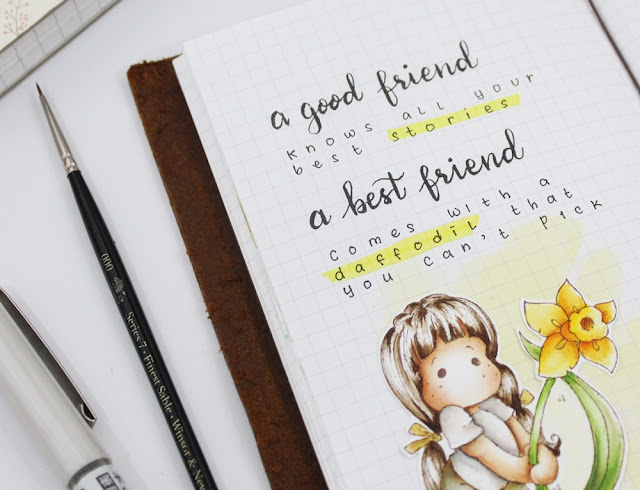 a good friend
knows all your
best stories
a best friend
comes with a
daffodil that
you can't pick
000
Series 7 · Finest Sable · Winsor &